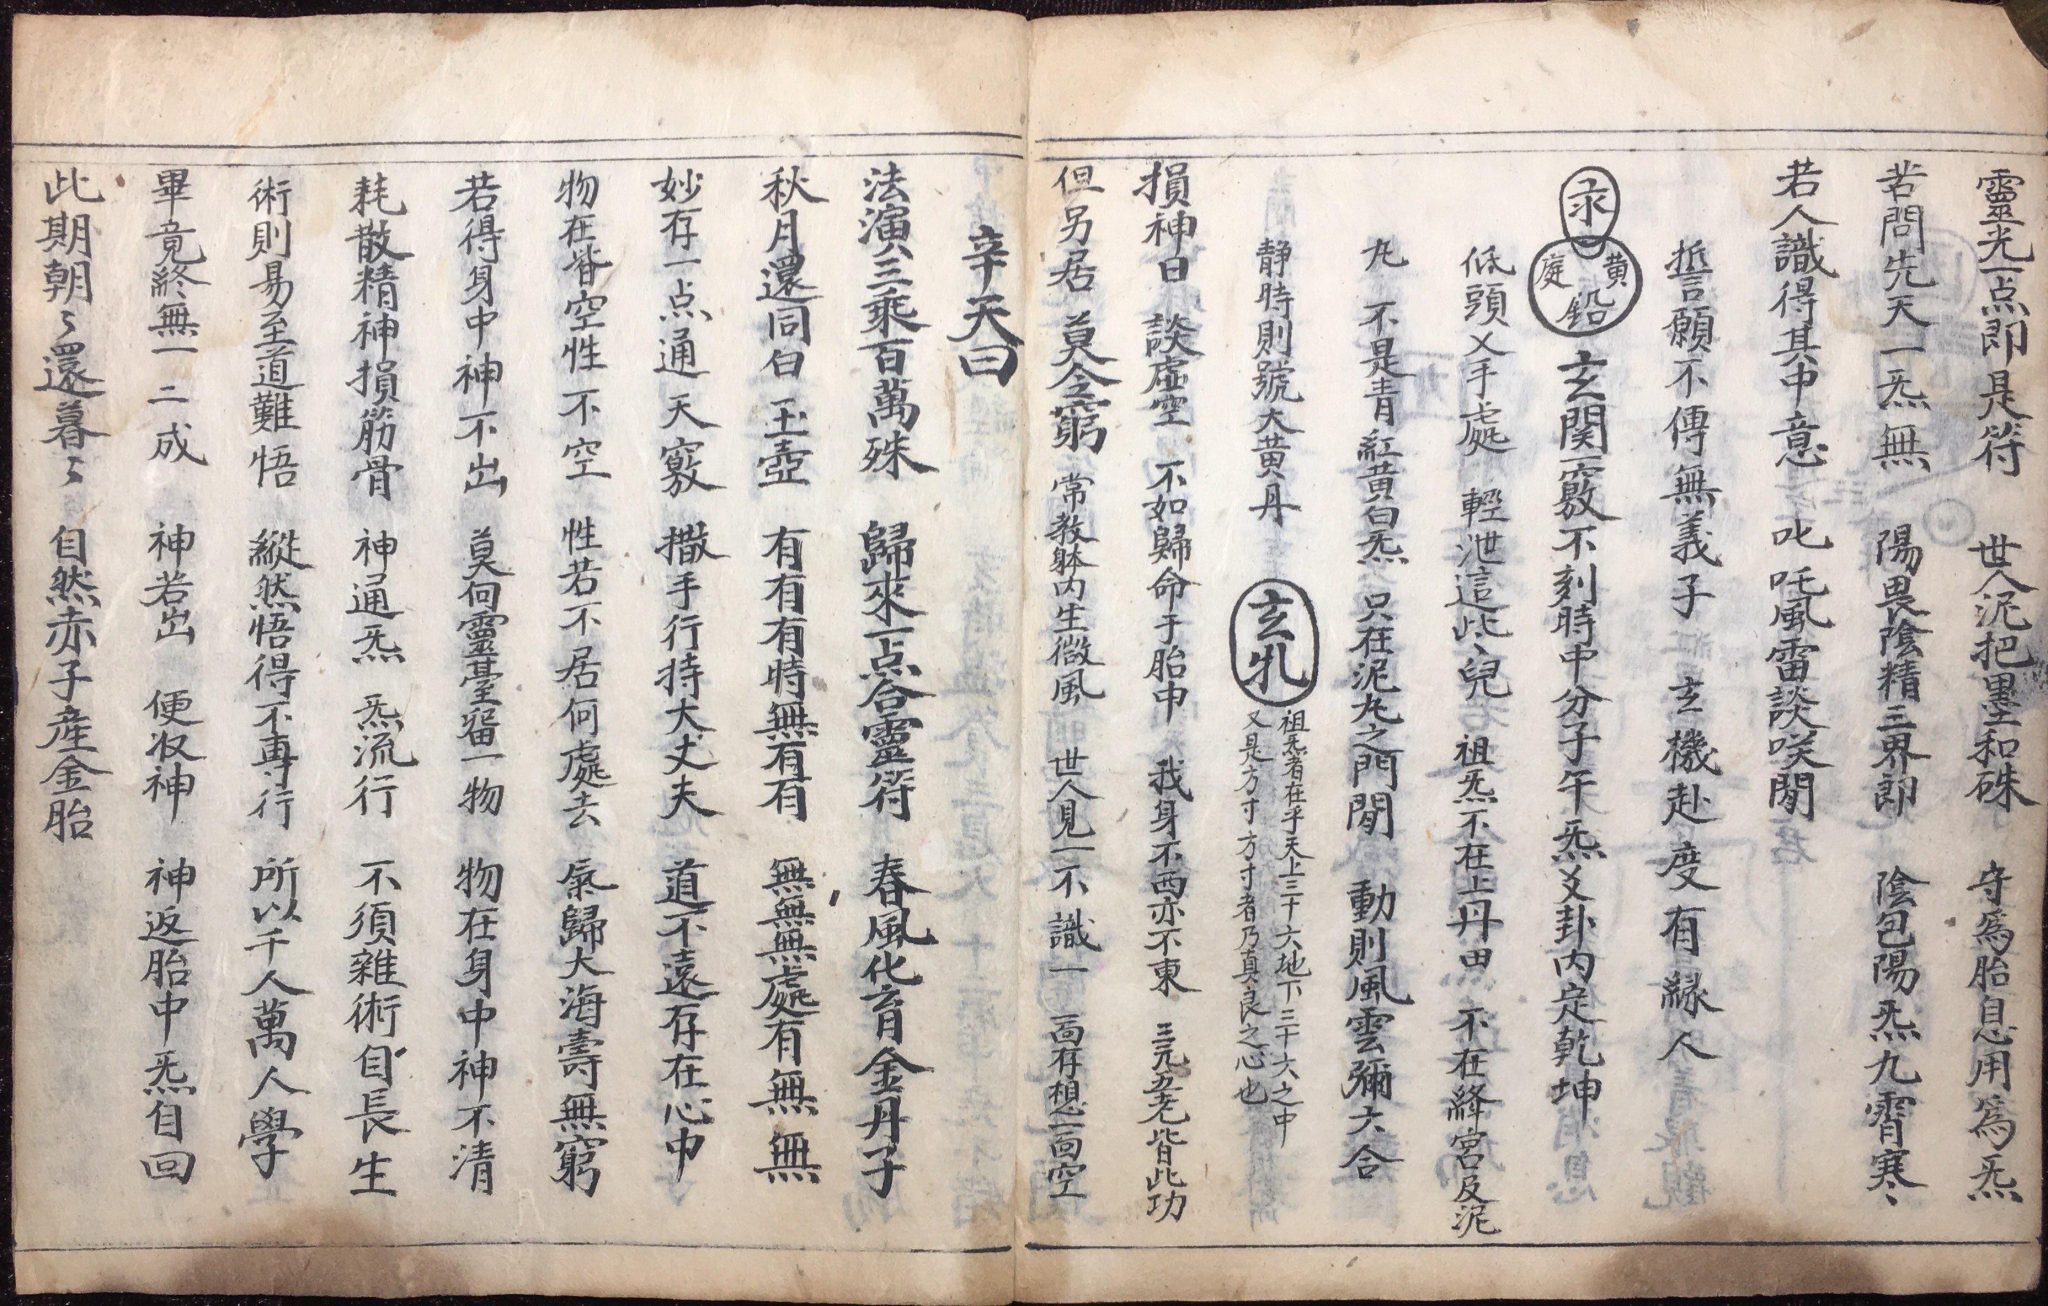 靈光一点即是符　世人泥把墨和硃　守為胎息用為炁
若問先天一炁無　陽畏陰精三界郎　陰包陽炁九霄寒〻
若人識得其中意　叱吒風雷談咲閒
誓願不傳無義子　玄機赴度有緣人
汞　黃庭鉛　玄関一竅不刻時中分子午　炁爻卦內定乾坤
低頭乂手處　輕泄這些〻兒　祖炁不在上丹田　不在絳宮及泥
丸　不是青紅黃白炁　只在泥丸之門閒　動則風雲彌六合
静時則號大黃丹　玄牝　祖炁者在乎天上三十六地下三十六之中
又是方寸方寸者乃真良之心也
損神日　談虛空　不如歸命于胎中　我身不西亦不東　三元五老皆此功
但另居　莫令窮　常教躰內生微風　世人見一不識一　一面存想一面空
辛天曰
法演三乘百萬殊　歸來一点合靈符　春風化育金丹子
秋月還同白玉壺　有有有時無有有　無無無處有無無
妙存一点通天竅　撒手行持大丈夫　道不遠存在心中
物在皆空性不空　性若不居何處去　氣歸大海壽無窮
若得身中神不出　莫向靈臺留一物　物在身中神不清
耗散精神損筋骨　神通炁炁流行　不須雜術自長生
術則易至道難悟　縱然悟得不再行　所以千人萬人學
畢竟終無一二成　神若出便收神　神返胎中炁自回
此期朝〻還暮〻　自然赤子產金胎